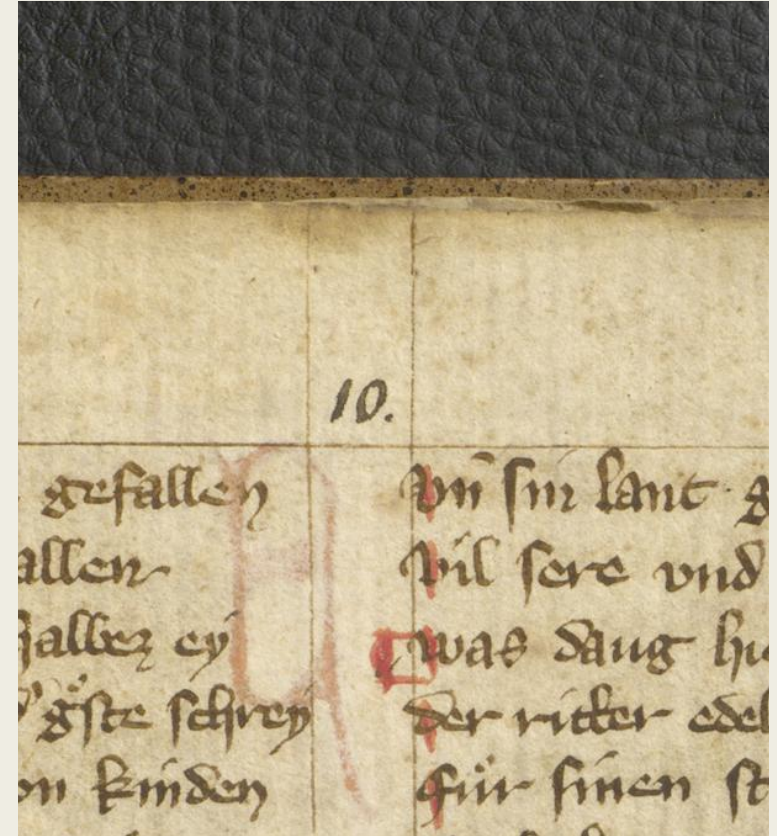 10.
gefallen
allen
halbez ey
gͦste schrey
on kinden
Vn̄ sin lant g
Vil sere vnd
was daug hi
der ritter edel
für sinen st